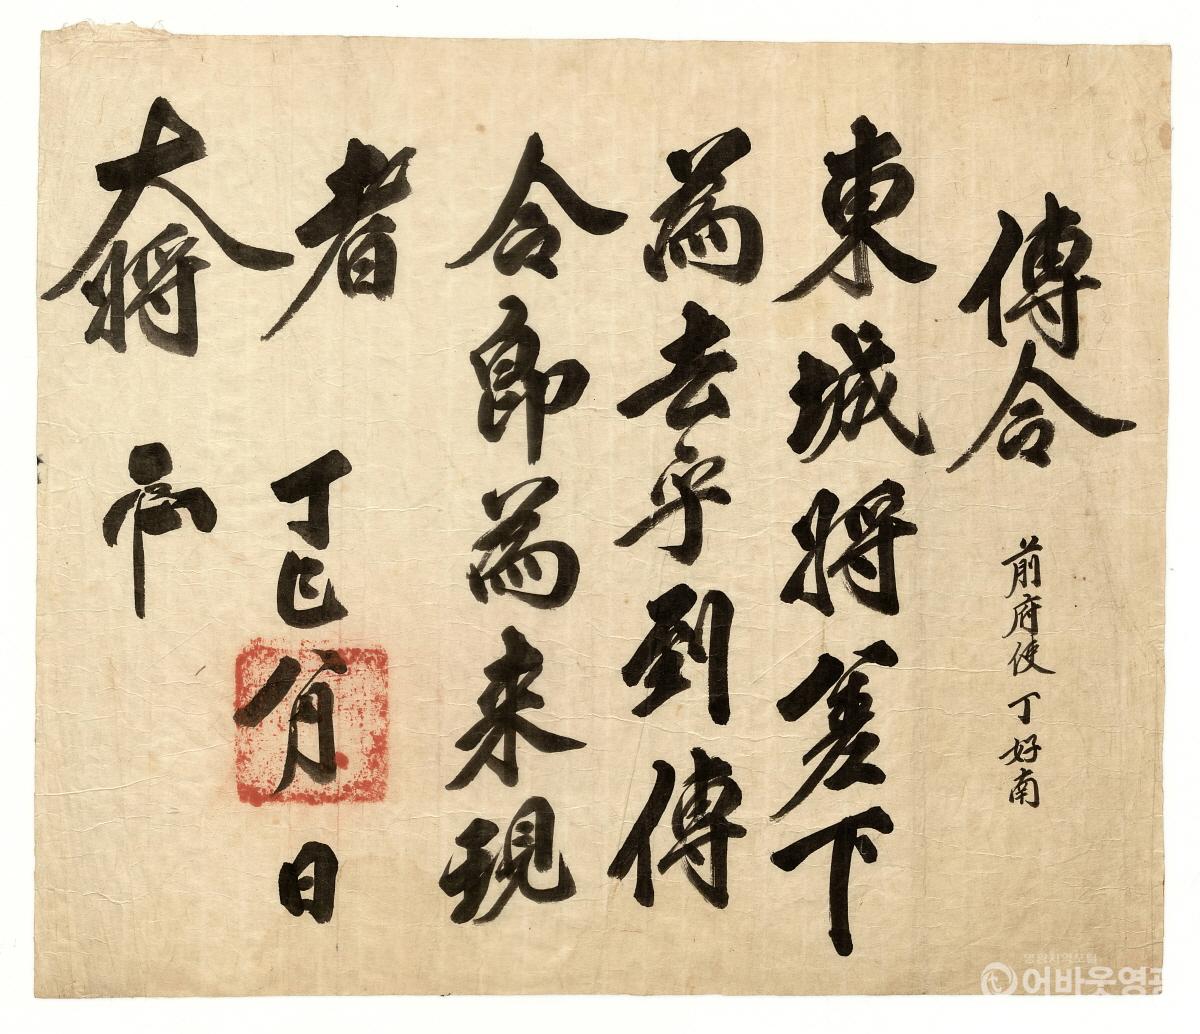 傳令 前府使丁好南
東城將差下
爲去乎到傳
令卽爲來現
者 丁巳 八月 日
大將
명광지역포털
어바웃영광